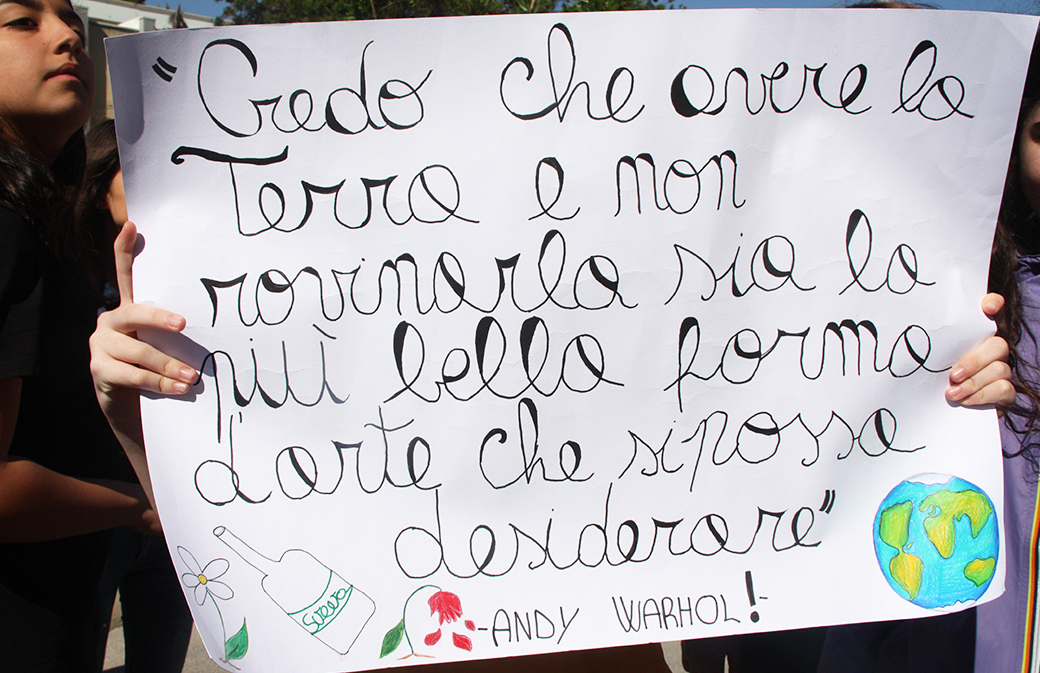 "Credo che avere la
Terra e non
rovinarla sia la
più bella forma
d'arte che si possa
desiderare"
-ANDY WARHOL!-